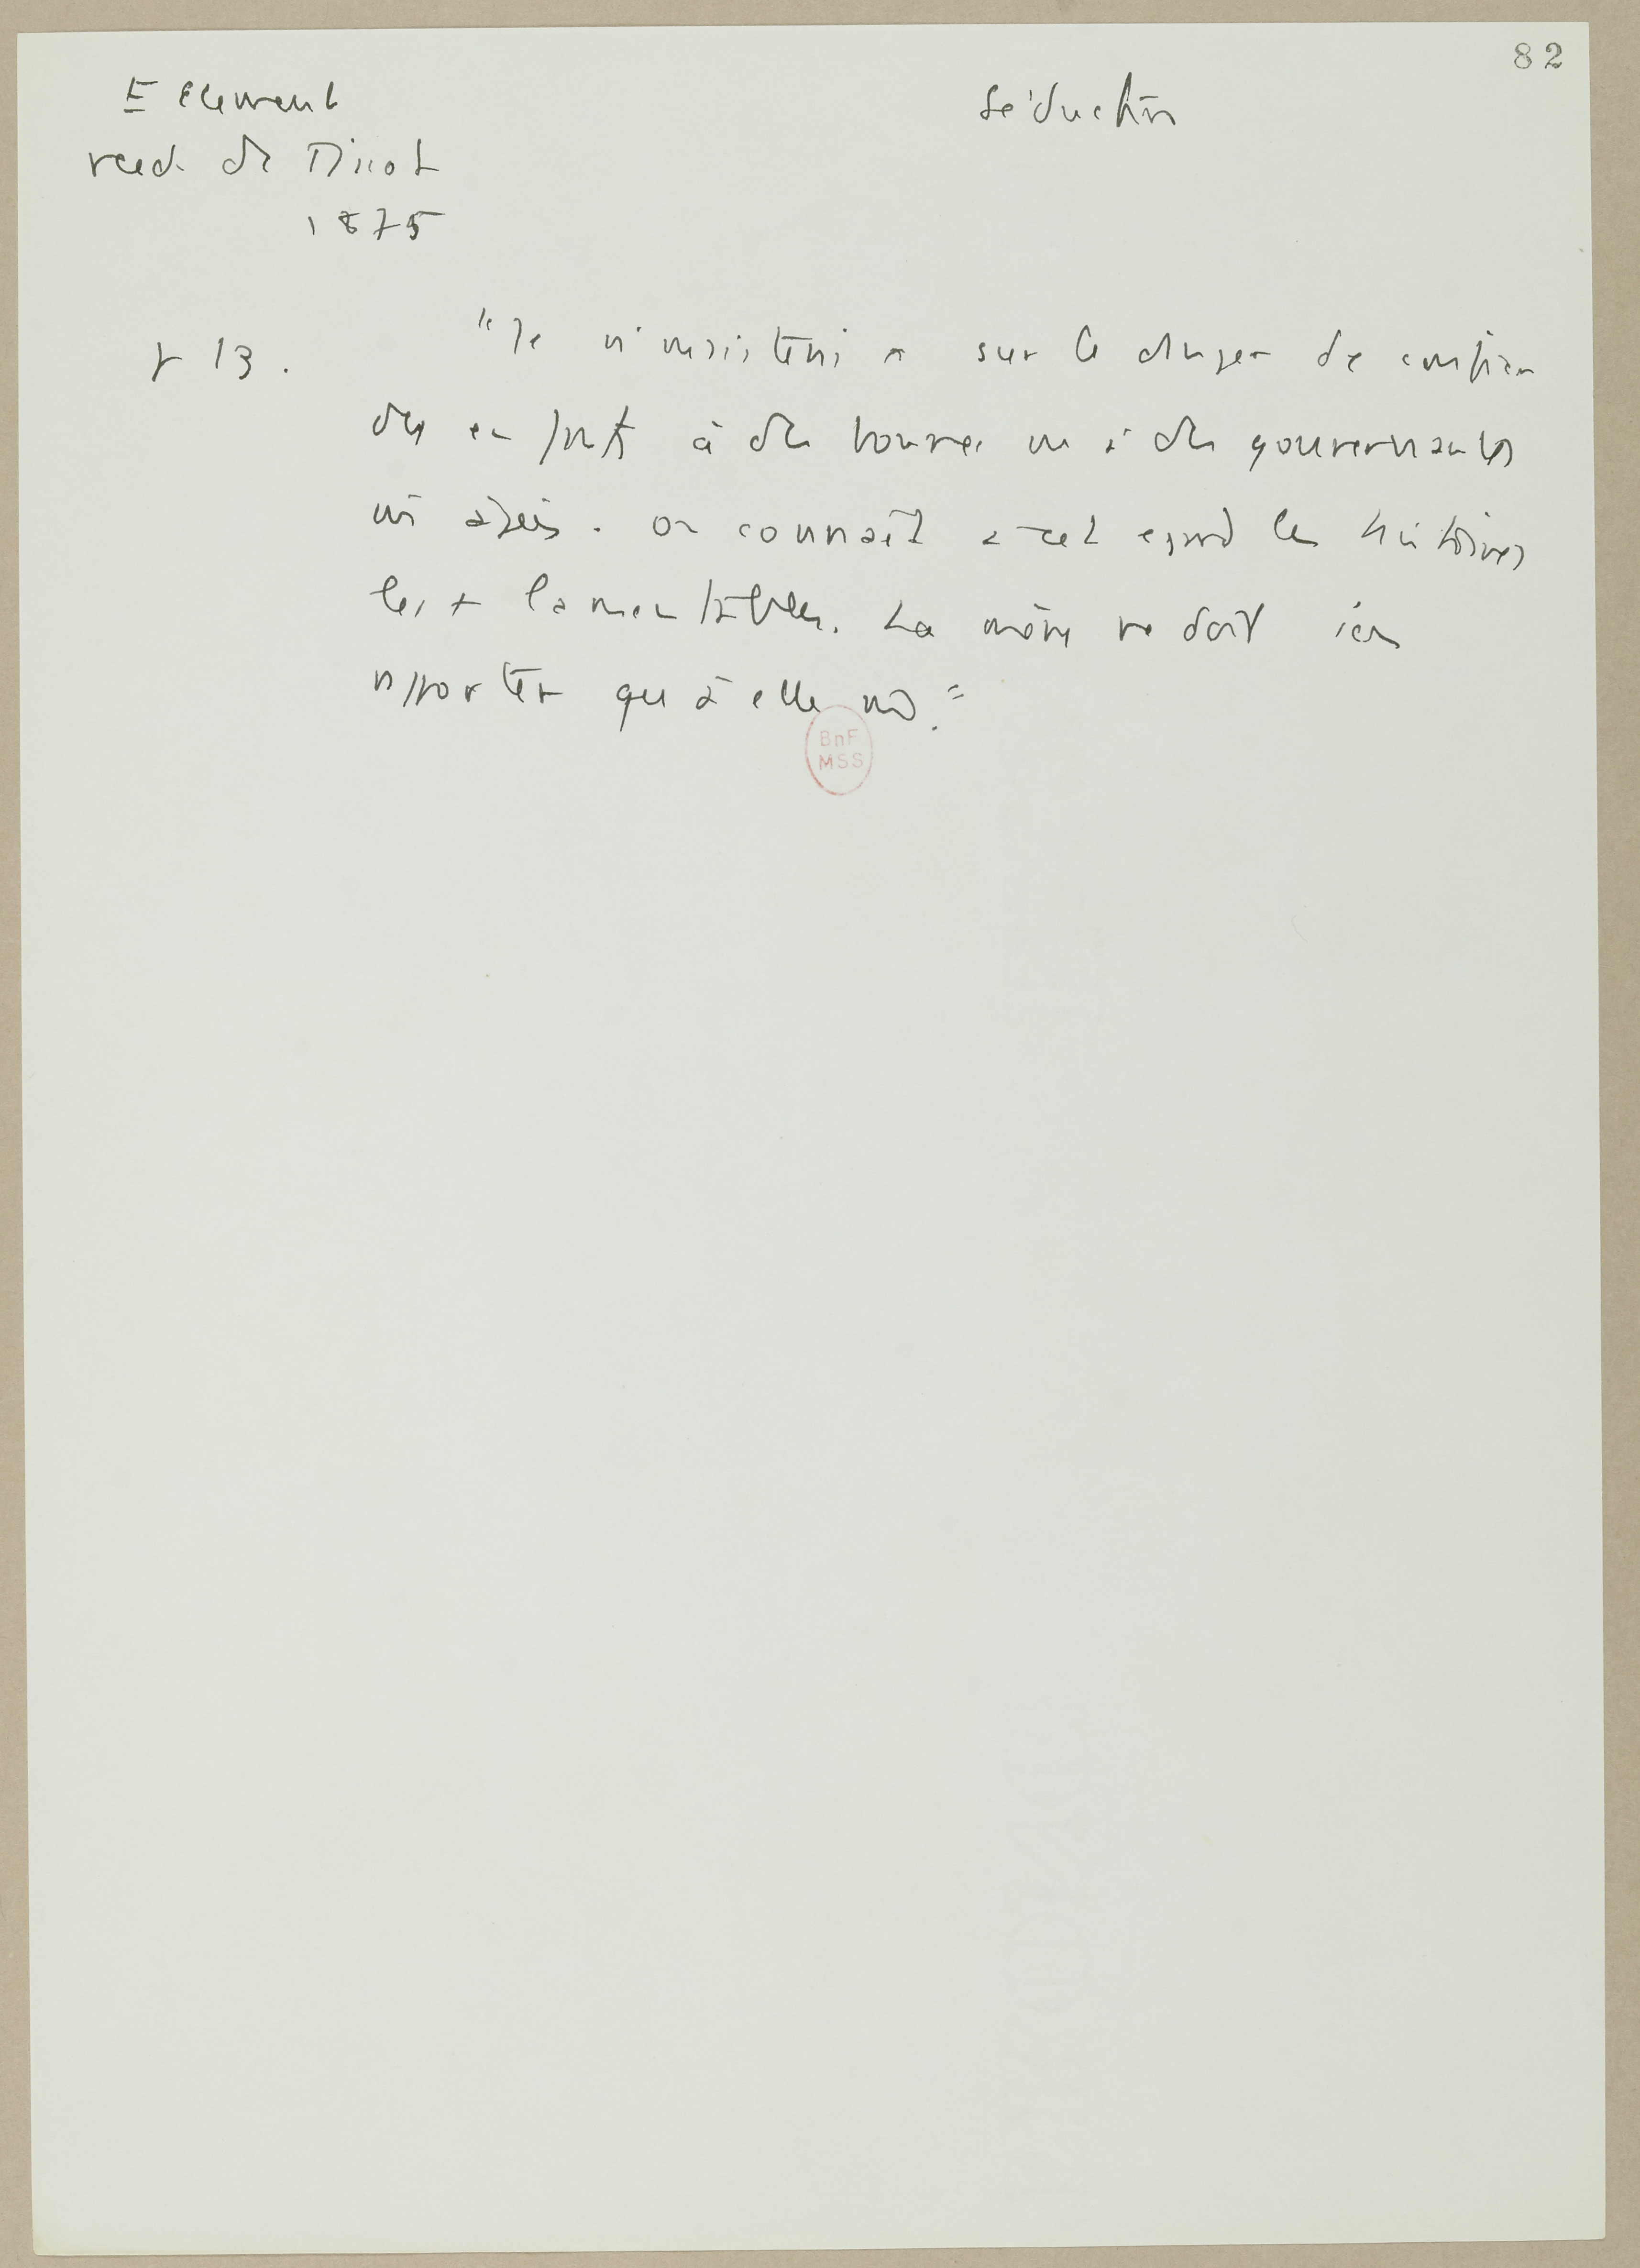 82
E Clément
Séduction
de Dicot
1875
p 13.
"Je n'insisterai pas sur le danger de confier
des enfants à des bonnes ou à des gouvernantes
On connaît à cet égard les histoires
les + lamentables. La mère ne doit
rapporter qu'à elle
BnF
MSS